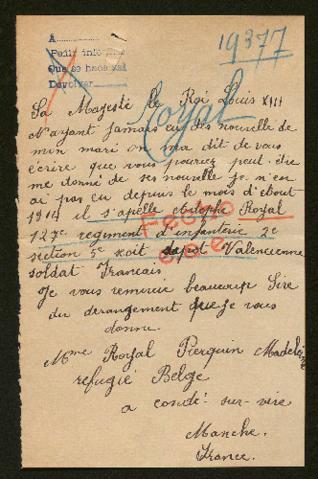 A
Pedir info
Que se haga
Devolver
19377
Royal
Sa Majesté le Roi Louis XIII
N'ayant jamais eu des nouvelle de
min mari on ma dit de vous
écrire que vous pouriez peut-être
me donné de ses nouvelle je n'en
ai pas eu depuis le mois d'about
1914 il s'apelle Royal
127e regiment d'infanterie 2e
section 5e depot Valencienne
soldat Francais
Je vous remercie beaucoup Sire
du derangement que je vous
donne.
Mme Royal Pierquin Madeleine
refugié Belge
a condé-sur-vire
Manche.
France.